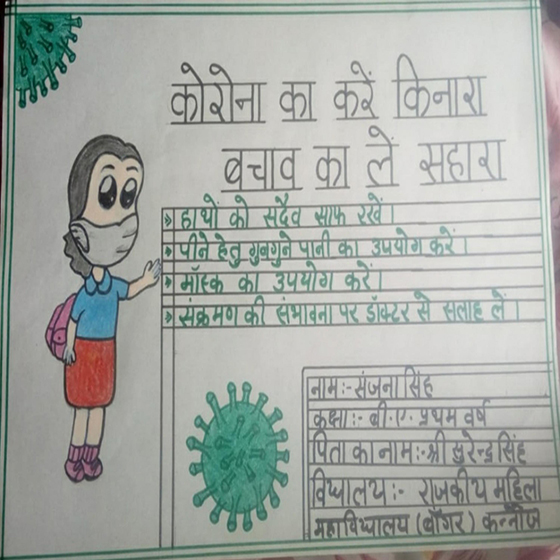 कोरोना का करें किनारा
बचाव का लें सहारा
» हाथों को सदैव साफ रखें।
» पीने हेतु गुनगुने पानी का उपयोग करें।
» मॉस्क का उपयोग करें।
» संक्रमण की संभावना पर डॉक्टर से सलाह लें।
नाम:- संजना सिंह
कक्षा:- बी.ए. प्रथम वर्ष
पिता का नाम:- श्री सुरेन्द्र सिंह
विद्यालय:- राजकीय महिला
महाविद्यालय (बाँगर) कन्नौज